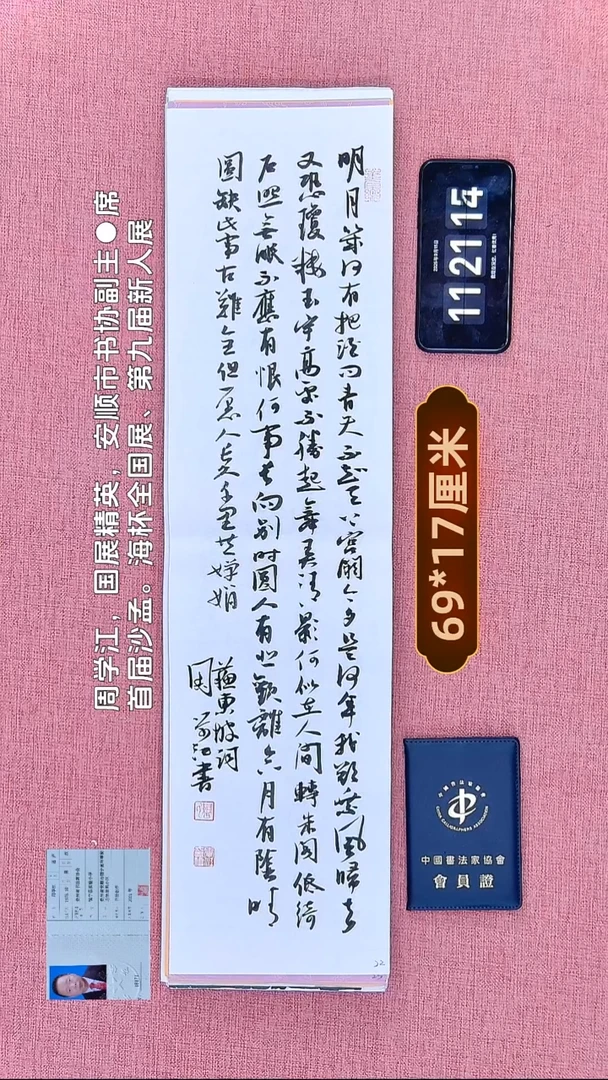 明月幾时有把酒问青天不知天上宫闕今夕是何年我欲乘風歸去
又恐瓊楼玉宇高处不勝起舞弄清影何似在人间轉朱阁低绮
户照無眠不應有恨何事长向别时圓人有悲歡離合月有陰晴
圆缺此事古難全但愿人长久千里共嬋娟
蘇東坡词
周学江書
周学江，国展精英，安顺市书协副主●席
首届沙孟。海杯全国展、第九届新人展
11 21 14
69*17厘米
中國書法家協會
會員證